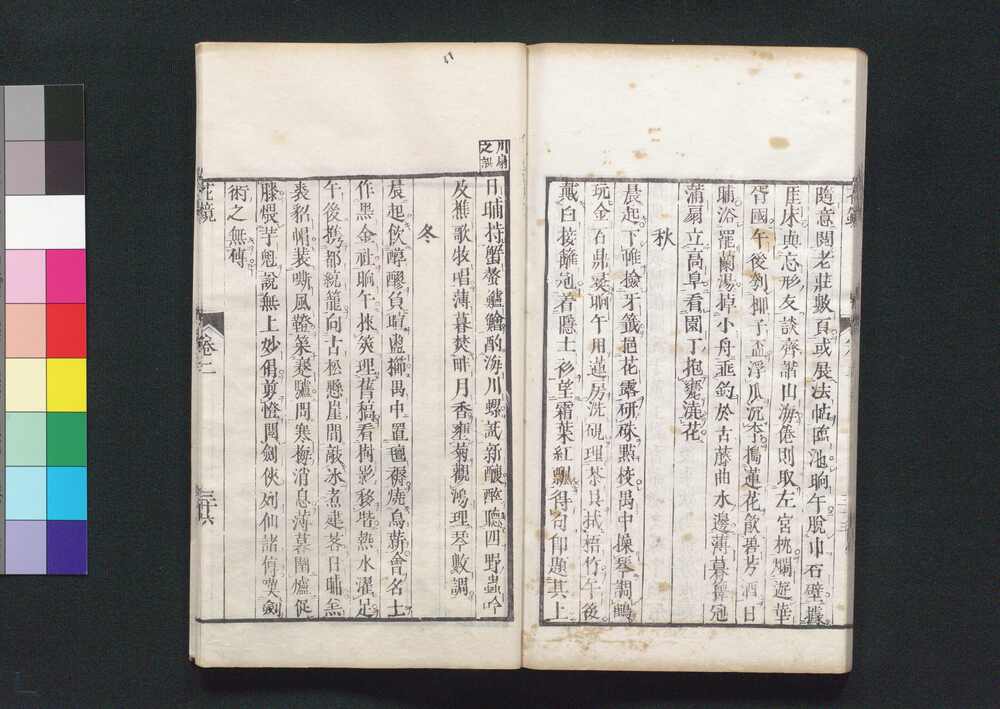 隨意閱老莊數頁或展法帖臨池晌午脫巾石壁據
匡床與忘形友談齊諧山海倦則取左宮枕爛遊華
胥國午後刳椰子盃浮瓜沉李搗蓮花飲碧芳酒日
晡浴罷蘭湯掉小舟垂釣於古藤曲水邊薄暮籜冠
蒲扇立高阜看園丁抱甕澆花
秋
晨起下帷撿牙籤挹花露研硃點校禺中操琴調鶴
玩金石鼎彝晌午用蓮房洗硯理茶具拭梧竹午後
戴白接籬冠着隱士衫望霜葉紅飄得句即題其上
日晡持蟹螯鱸鱠酌海川螺試新釀醉聽四野蟲吟
及樵歌牧唱薄暮焚畔月香壅菊觀鴻理琴數調
冬
晨起飲醇醪負暄盥櫛禺中置氊褥燒烏薪會名士
作黑金社晌午挾筴理舊稿看樹影移堦熱水濯足
午後携都統籠向古松懸崖間敲冰煮建茗日晡羔
裘貂帽裝嘶風鐙策蹇驢問寒梅消息薄暮圍爐促
膝煨芋魁說無上妙偈剪燈閱劍俠列仙諸傳嘆劍
術之無傳
川扇
之誤
花鏡
卷二
三十六